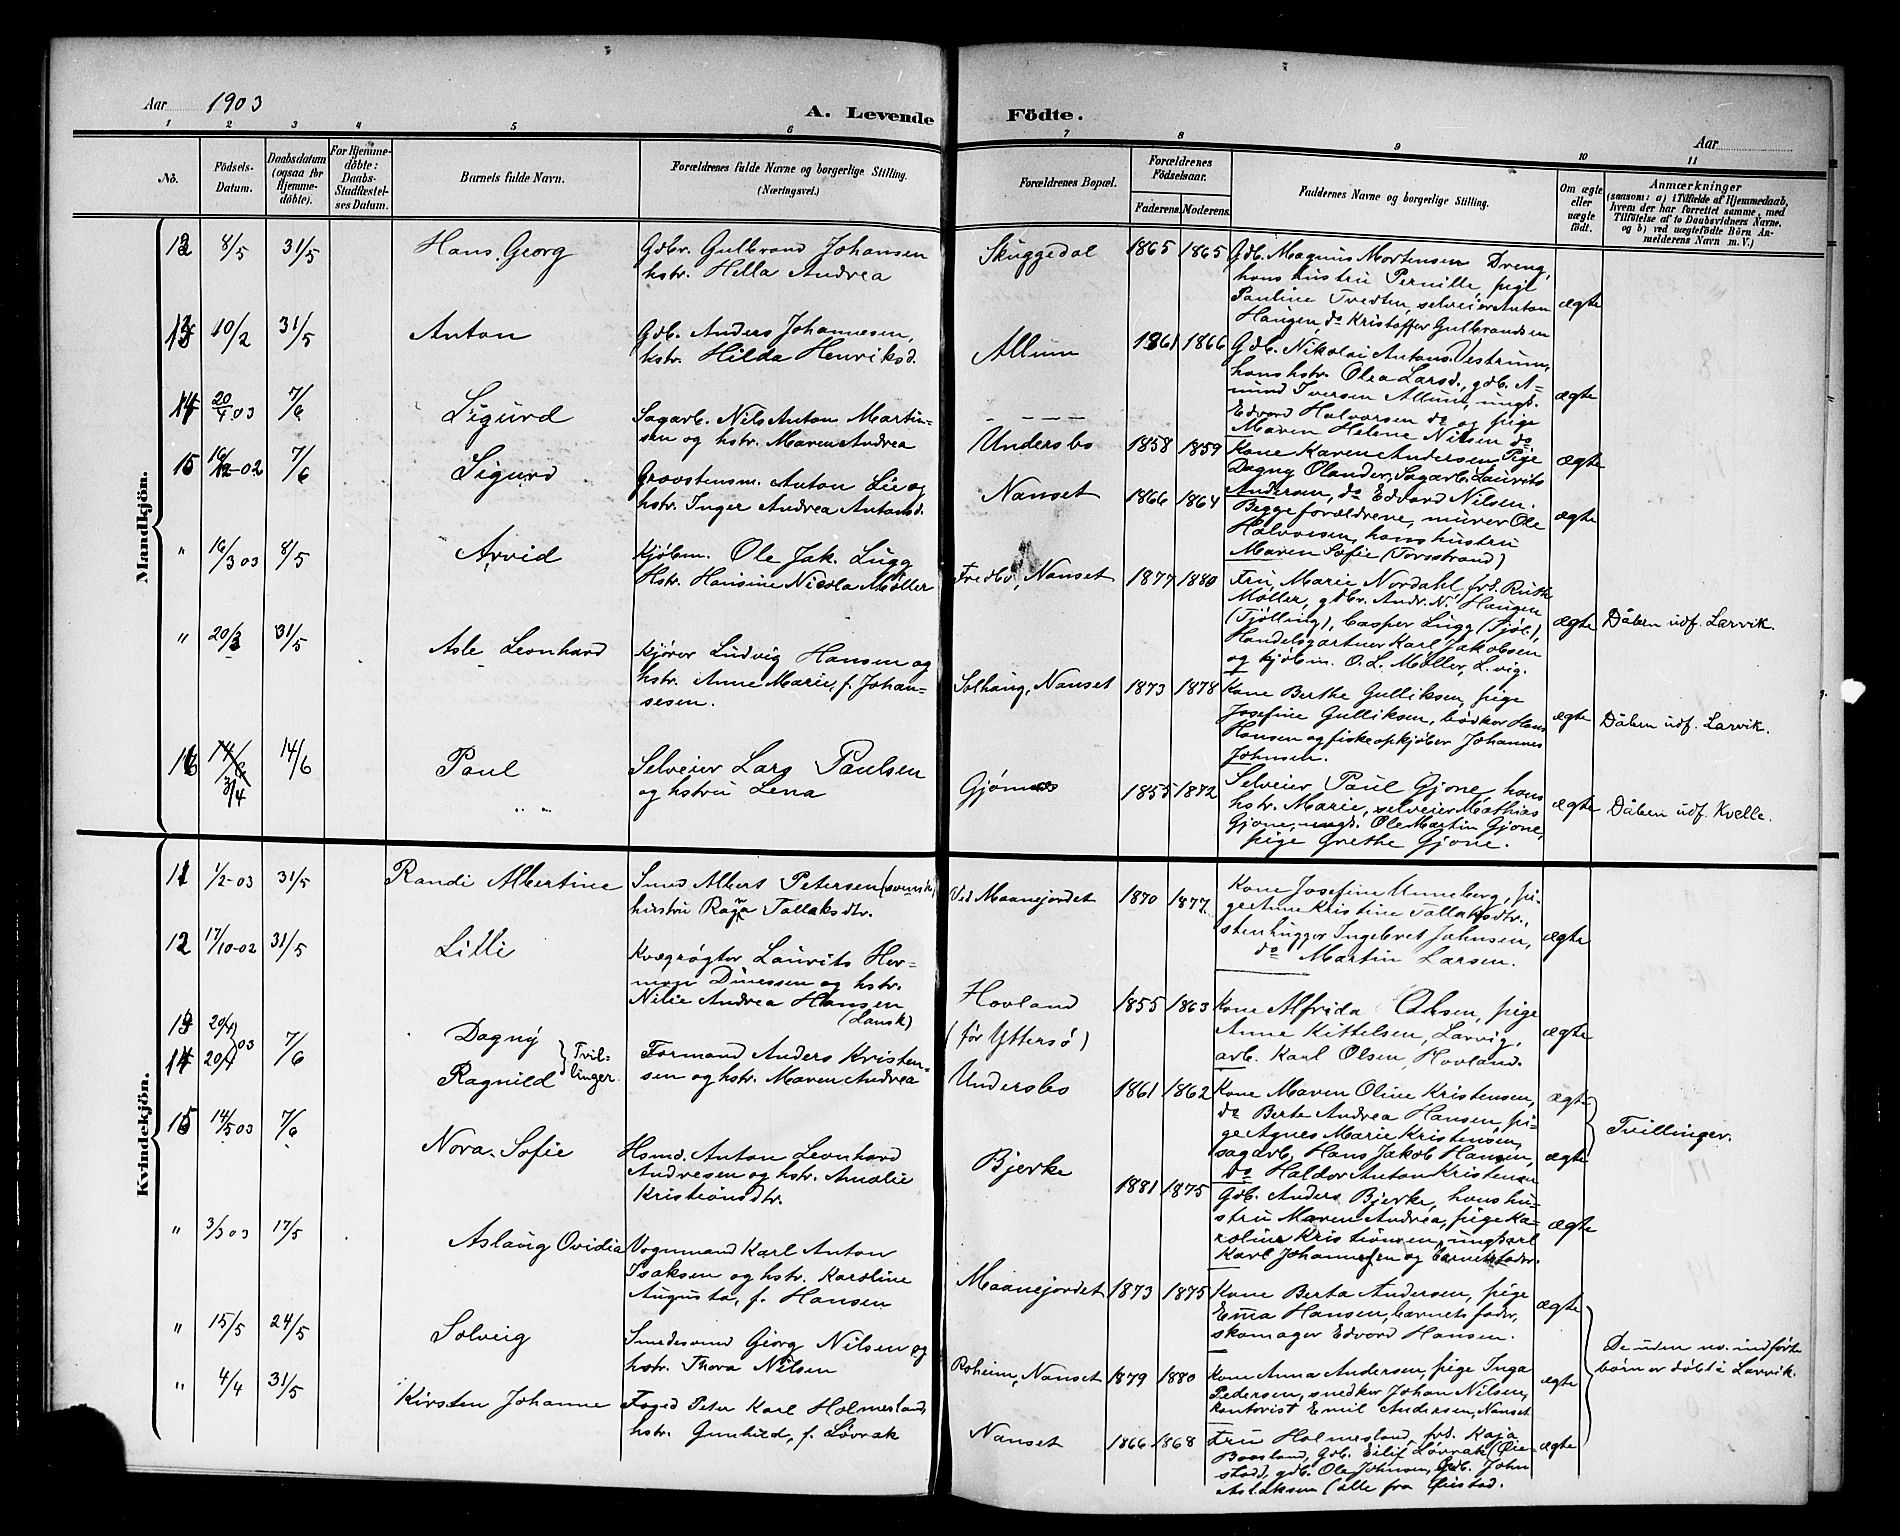 Aar 1903
A. Levende Födte.
Aar
1 2 3 4 5 6 7 8 9 10 11
No.
Födsels-
Datum.
Daabsdatum
(ogsaa for
Hjemme-
döbte).
For Hjemme-
döbte:
Daabs-
Stadfæstel-
ses Datum.
Barnets fulde Navn.
Forældrenes fulde Navne og borgerlige Stilling.
(Næringsvei.)
Forældrenes Bopæl.
Forældrenes
Födselsaar.
Faderens. Moderens.
Faddernes Navne og borgerlige Stilling.
Om ægte
eller
uægte
födt.
Anmærkninger
(saasom: a) i Tilfælde af Hjemmedaab,
hvem der har forrettet samme, med
Tilföielse af to Daabsvidners Navne,
og b) ved uægtefödte Börn An-
melderens Navn m. V.)
Mandkjön.
12 8/5 31/5 Hans Georg
Gdbr. Gulbrand Johansen
hstr. Hella Andrea
Skuggedal 1865 1865
Gdb. Magnus Mortensen Dreng,
hans hustru Pernille, pige
Pauline Tvedten, selveier Anton
Haugen, do Kristoffer Gulbrandsen
ægte
13 10/2 31/5 Anton
Gdb. Anders Johannesen,
hstr. Hilda Henriksd.
Allum 1861 1866
Gdb. Nikolai Antons. Vestrum,
hans hstr. Olea Larsd., gdb. A-
mund Iversen Allum, ungk.
Edvard Halvorsen do og pige
Maren Helene Nilsen do
ægte
14 20/4 03 7/6 Sigurd
Sagarb. Nils Anton Martin-
sen og hstr. Maren Andrea
Undersbo 1858 1859
Kone Karen Andersen, Pige
Dagny Olander, Sagarb. Laurits
Andersen, do Edvard Nilsen.
ægte
15 16/12-02 7/6 Sigurd
Gravstensm. Anton Lie og
hstr. Inger Andrea Antonsd.
Nanset 1866 1864
Begge forældrene, murer Ole
Halvorsen, hans hustru
Maren Sofie (Torsstrand)
ægte
" 16/3 03 8/5 Arvid
Kjøbm. Ole Jak. Lugg
Hstr. Hansine Nicola Møller
Fredbo, Nanset 1877 1880
Fru Marie Nordahl, frk. Ruth
Møller, gdbr. Andr. N. Haugen
(Tjølling), Casper Lugg (Tjøl.),
Handelsgartner Karl Jakobsen
og kjøbm. O. L. Møller, L.vig.
ægte Dåben udf. Larvik.
" 20/3 31/5 Asle Leonhard
Kjører Ludvig Hansen og
hstr. Anne Marie, f. Johan-
sesen.
Solhaug, Nanset 1873 1878
Kone Berthe Gulliksen, pige
Josefine Gulliksen, bødker Hans
Hansen og fiskeopkjøber Johannes
Johnsen.
ægte Dåben udf. Larvik.
16 3/4 14/6 Paul
Selveier Lars Paulsen
og hstru Lena
Gjønnes 1855 1872
Selveier Paul Gjone, hans
hstr. Marie, selveier Mathias
Gjone, ungk. Ole Martin Gjone,
pige Grethe Gjone.
ægte Dåben udf. Kvelle.
Kvindekjön.
11 1/2-03 31/5 Randi Albertine
Smed Albert Petersen (svensk)
hustru Ragna Tallaksdtr.
Ved Maanejordet 1870 1877.
Kone Josefine Unneberg, pi-
ge Anne Kristine Tallaksdtr.,
stenhugger Ingebret Johnsen,
do Martin Larsen.
ægte
12 17/10-02 31/5 Lilli
Kvægrøgter Laurits Her-
man Dinessen og hstr.
Nilie Andrea Hansen
(Dansk)
Hovland
(før Yttersö)
1855 1863
Kone Alfrida Olsen, pige
Anne Kittelsen, Larvig,
arb. Karl Olsen, Hovland.
ægte
13 20/4 03 7/6 Dagny
14 20/4 Ragnild
Tvil-
linger.
Formand Anders Kristen-
sen og hstr. Maren Andrea
Undersbo 1861 1862
Kone Maren Oline Kristensen,
do Berte Andrea Hansen, pi-
ge Agnes Marie Kristensen,
sagarb. Hans Jakob Hansen,
do Haldor Anton Kristensen
ægte
ægte
Tvillinger.
15 14/5 03 7/6 Nora Sofie
Hsmd. Anton Leonhard
Andresen og hstr. Amalie
Kristiansdtr.
Bjerke 1881 1875
Gdb. Anders Bjerke, hans hu-
stru Maren Andrea, pige Ka-
roline Kristiansen, ungkarl
Karl Johannesen og barnets fader.
ægte
" 3/3 03 17/5 Aslaug Ovidia
Vognmand Karl Anton
Isaksen og hstr. Karoline
Augusta, f. Hansen
Maanejordet 1873 1875
Kone Berta Andersen, pige
Emma Hansen, barnets fader,
skomager Edvard Hansen.
ægte
" 15/5 24/5 Solveig
Smedesvend Georg Nilsen og
hstr. Thora Nilsen
Roheim, Nanset 1879 1880
Kone Anna Andersen, pige Inga
Pedersen, snedker Johan Nilsen,
kontorist Emil Andersen, Nanset
ægte
De uden no. indførte
børn er døbt i Larvik.
" 4/4 31/5 Kirsten Johanne
Foged Peter Karl Holmesland,
hstr. Gunhild, f. Løvrak
Nanset 1866 1868
Fru Holmesland, frk. Kaja
Baasland, gdb. Eilif Løvrak (Øie-
stad), gdb. Ole Johnsen, gdb. John
Aslaksen (alle fra Øiestad.
ægte